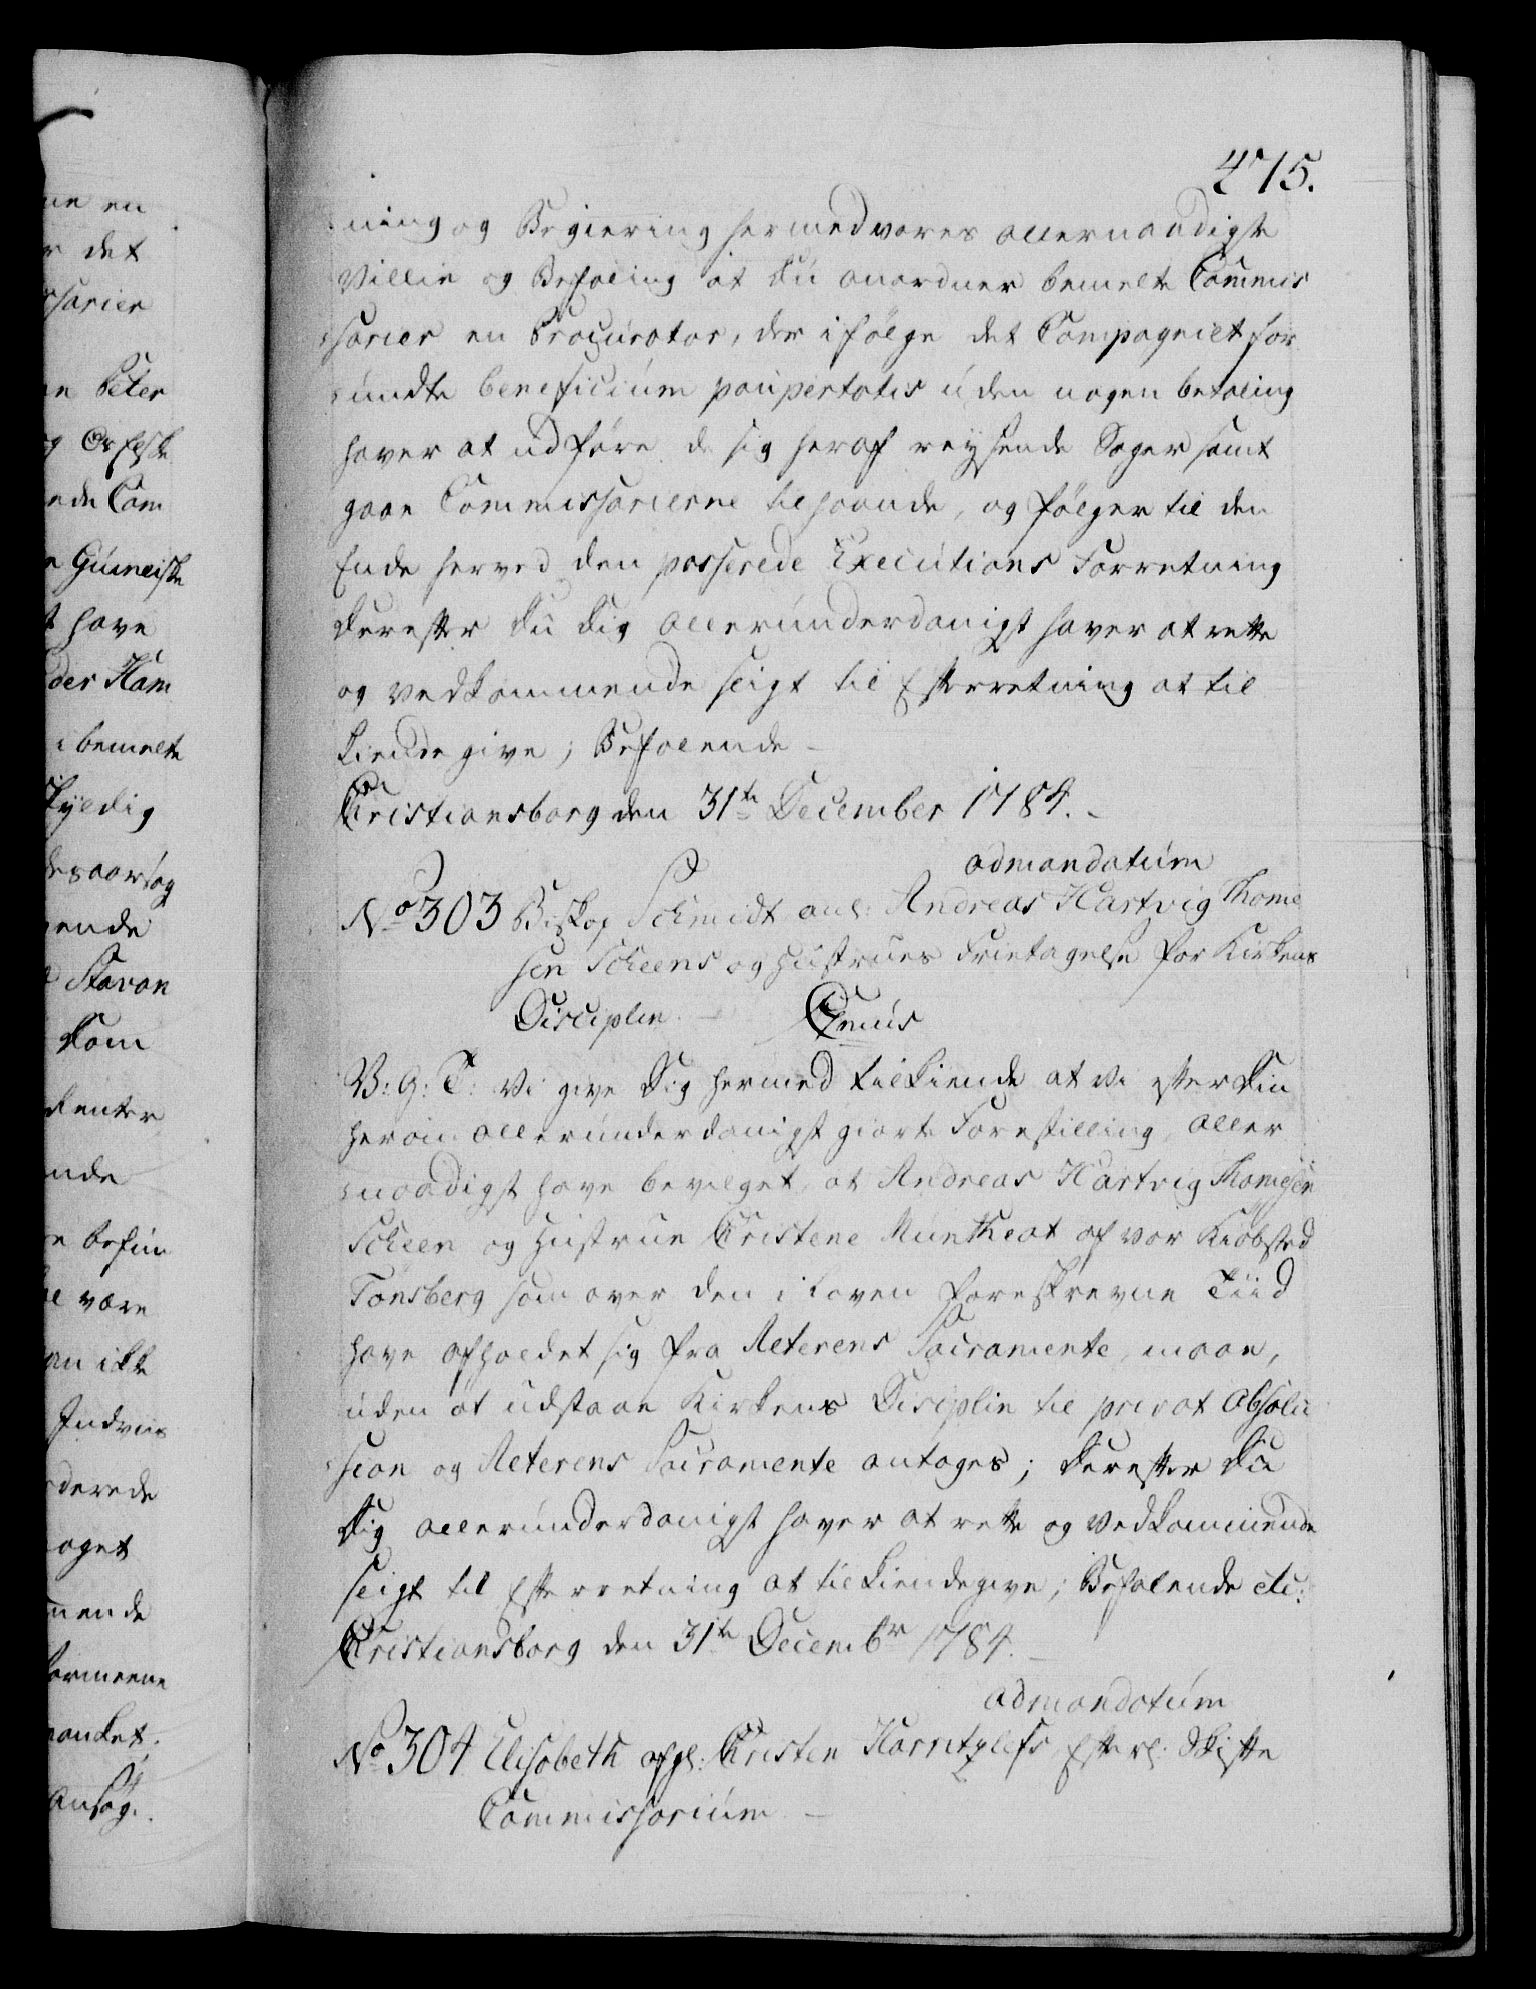 475.
ning og Regiering hermed vores allernaadigste
Villie og Befaling at Du anordner bemelte Commis
sarier en Procurator, der ifølge det Compagniet for
undte beneficium paupertatis uden nogen betaling
haver at udføre de sig heraf reysende Sager samt
gaae Commissarierne tilhaande, og følger til den
Ende herved den passerede Executions Forretning
Derefter Du Dig allerunderdanigst haver at rette
og vedkommende sligt til Efterretning at til
kiende give; Befalende
Christiansborg den 31te December 1784.
ad mandatum
No 303 Biskop Schmidt anl: Andreas Hartvig Thome
sen Scheens og Hustrues Frietagelse for Kirkens
Disciplin
V: G: T: Vi give Dig hermed tilkiende at Vi efter Din
herom allerunderdanigst giorte Forestilling, aller
naadigst have bevilget, at Andreas Hartvig Thomesen
Scheen og Hustrue Christene Muntheat af vor Kiøbsted
Tønsberg som over den i Loven foreskrevne Tiid
have afholdet sig fra Alterens Sacramente, maae,
uden at udstaae Kirkens Disciplin til privat Absolu
sion og Alterens Sacramente antages; Derefter Du
Dig allerunderdanigst haver at rette og Vedkommende
sligt til Efterretning at tilkiendegive; Befalende etc:
Christiansborg den 31te Decembr 1784.
ad mandatum
No 304 Elisabeth afgl: Christen Efterl: Skifte
Commissorium